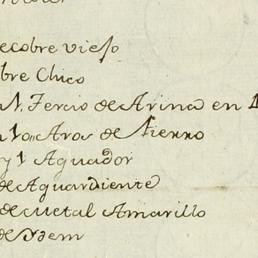 de cobre viejo
bre Chico
1. Tercio de Arina en 1
1on Aros de fierro
y 1 Aguador
de Aguardiente
de metal Amarillo
de Ydem